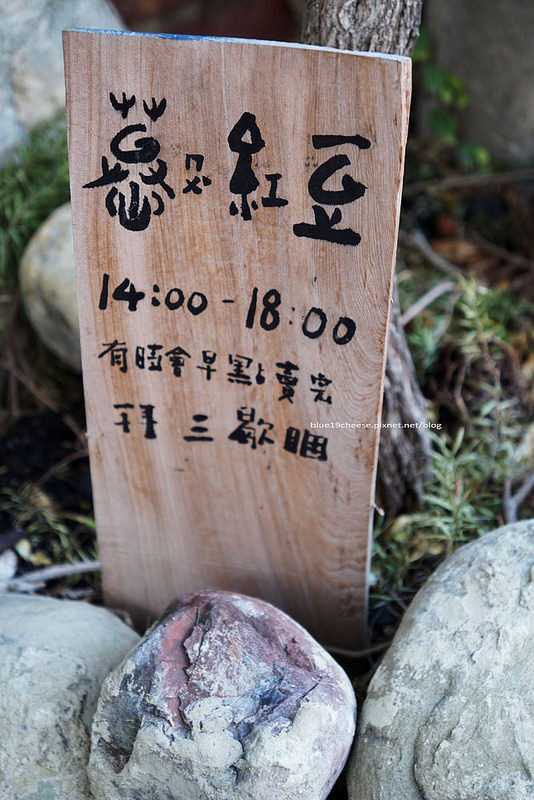 慕ㄇㄨˋ紅豆
14:00-18:00
有時會早點賣完
拜三歇睏
blue19cheese.pixnet.net/blog